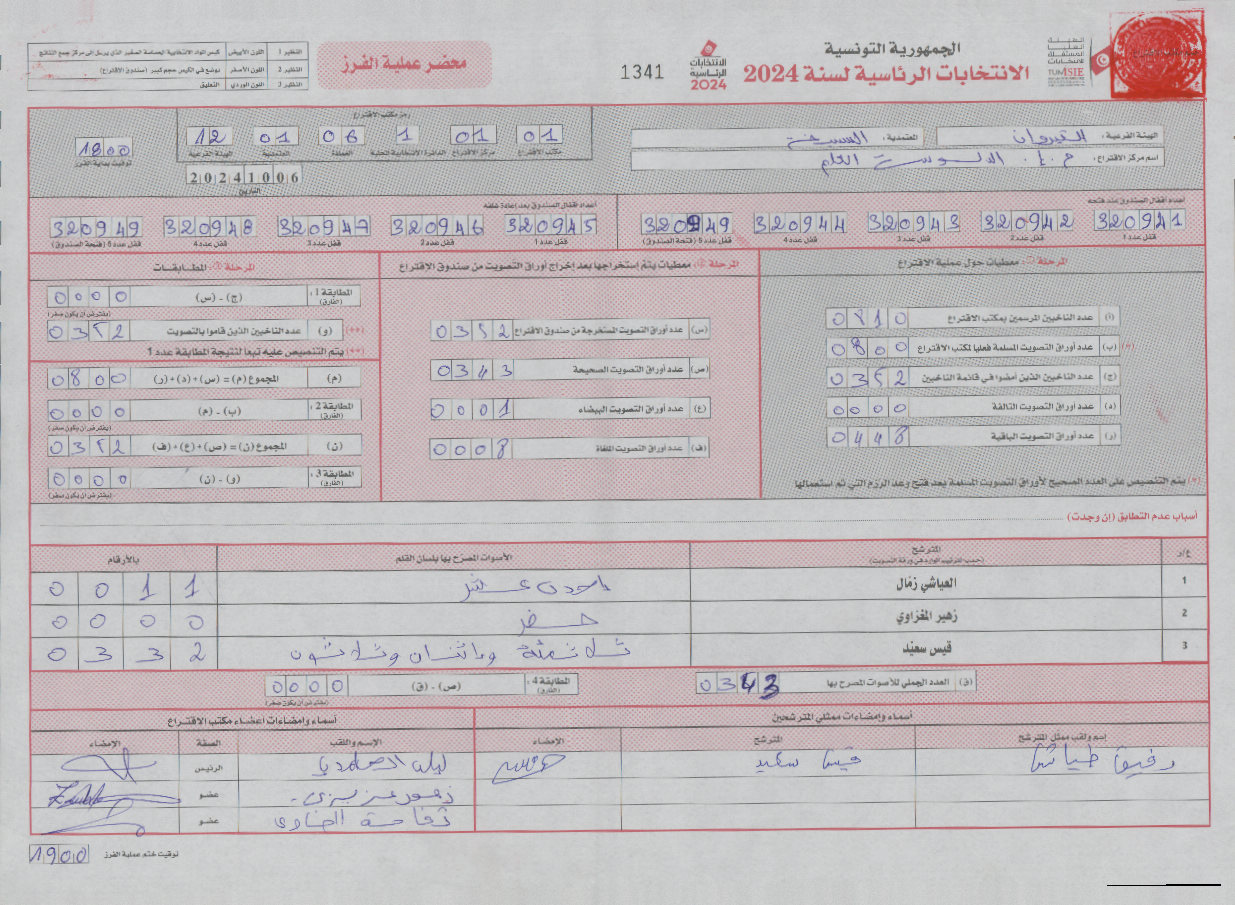 الجمهورية التونسية
الانتخابات الرئاسية لسنة 2024
الهيئة العليا المستقلة للانتخابات
TUNISIE
الانتخابات الرئاسية 2024
1341
محضر عملية الفرز
النظير 1 اللون الأبيض كيس المواد الانتخابية الحساسة الصغير الذي يرسل إلى مركز جمع النتائج
النظير 2 اللون الأصفر يوضع في الكيس حجم كبير (صندوق الاقتراع)
النظير 3 اللون الوردي التعليق
الهيئة الفرعية : القيروان المعتمدية : السبيخة
اسم مركز الاقتراع :
رمز مكتب الاقتراع
01 01 1 06 01 12
مكتب الاقتراع مركز الاقتراع الدائرة الانتخابية المحلية العمادة المعتمدية الهيئة الفرعية
20241006
التاريخ
1800
توقيت بداية الفرز
أعداد أقفال الصندوق عند فتحه
320941 320942 320943 320944 320949
قفل عدد 1 قفل عدد 2 قفل عدد 3 قفل عدد 4 قفل عدد 5 (فتحة الصندوق)
أعداد أقفال الصندوق بعد إعادة غلقه
320945 320946 320947 320948 320949
قفل عدد 1 قفل عدد 2 قفل عدد 3 قفل عدد 4 قفل عدد 5 (فتحة الصندوق)
المرحلة ①: معطيات حول عملية الاقتراع
(أ) عدد الناخبين المرسمين بمكتب الاقتراع 0810
(*) (ب) عدد أوراق التصويت المسلمة فعليا لمكتب الاقتراع 0800
(ج) عدد الناخبين الذين أمضوا في قائمة الناخبين 0352
(د) عدد أوراق التصويت التالفة 0000
(ر) عدد أوراق التصويت الباقية 0448
(*) يتم التنصيص على العدد الصحيح لأوراق التصويت المسلمة بعد فتح وعد الرزم التي تم استعمالها
المرحلة ②: معطيات يتم إستخراجها بعد إخراج أوراق التصويت من صندوق الاقتراع
(س) عدد أوراق التصويت المستخرجة من صندوق الاقتراع 0352
(ص) عدد أوراق التصويت الصحيحة 0343
(ع) عدد أوراق التصويت البيضاء 0001
(ف) عدد أوراق التصويت الملغاة 0008
المرحلة ③: المطابقات
المطابقة 1 : (الفارق) (ج) - (س) 0000
(يفترض أن يكون صفر)
(**) (و) عدد الناخبين الذين قاموا بالتصويت 0352
(**) يتم التنصيص عليه تبعا لنتيجة المطابقة عدد 1
(م) المجموع (م) = (س) + (د) + (ر) 0800
المطابقة 2 : (الفارق) (ب) - (م) 0000
(يفترض أن يكون صفر)
(ن) المجموع (ن) = (ص) + (ع) + (ف) 0352
المطابقة 3 : (الفارق) (و) - (ن) 0000
(يفترض أن يكون صفر)
أسباب عدم التطابق (إن وجدت)
ع/د المترشح (حسب الترتيب الوارد في ورقة التصويت) الأصوات المصرح بها بلسان القلم بالأرقام
1 العياشي زمّال احدى عشر 0011
2 زهير المغزاوي صفر 0000
3 قيس سعيّد ثلاثمئة واثنان وثلاثون 0332
(ق) العدد الجملي للأصوات المصرح بها 0343
المطابقة 4 : (الفارق) (ص) - (ق) 0000
(يفترض أن يكون صفر)
أسماء وإمضاءات ممثلي المترشحين
إسم ولقب ممثل المترشح المترشح الامضاء
رفيق قيس سعيد
أسماء وإمضاءات أعضاء مكتب الاقتراع
الإسم واللقب الصفة الإمضاء
ليلى الرئيس
زهور عزيزي عضو
تفاحة عضو
توقيت ختم عملية الفرز 1900